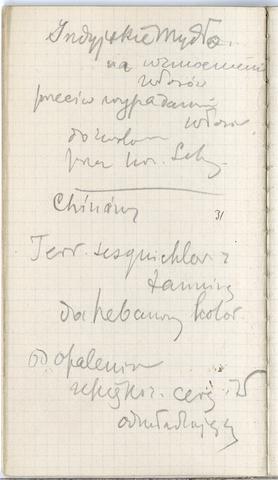 Indyjskie Mydło.
na wzmocnienie
włosów
przeciw wypadaniu
włosów
przez
Chininy
31
Ferr. sesquichlor z
tanniną
da hebanowy kolor
od opalenia
upiększ. cerę i
odmładzający